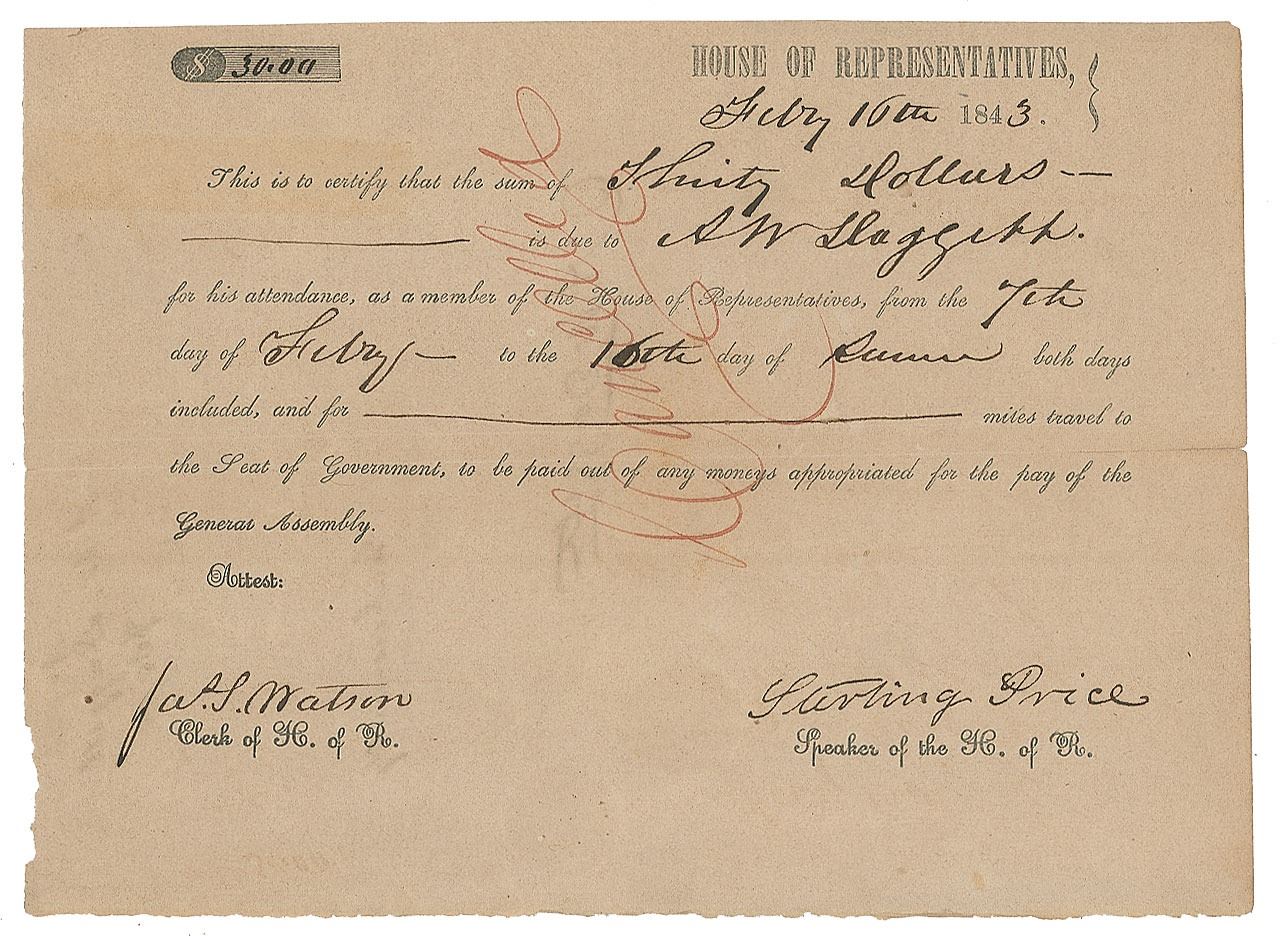 $ 30.00
HOUSE OF REPRESENTATIVES,
Febry 16th 1843.
This is to certify that the sum of Thirty Dollars
is due to A W Daggett.
for his attendance, as a member of the House of Representatives, from the 7th
day of Febry to the 16th day of Same both days
included, and for miles travel to
the Seat of Government, to be paid out of any moneys appropriated for the pay of the
General Assembly.
Attest:
Jas. S. Watson
Clerk of H. of R.
Sterling Price
Speaker of the H. of R.
Cancelled